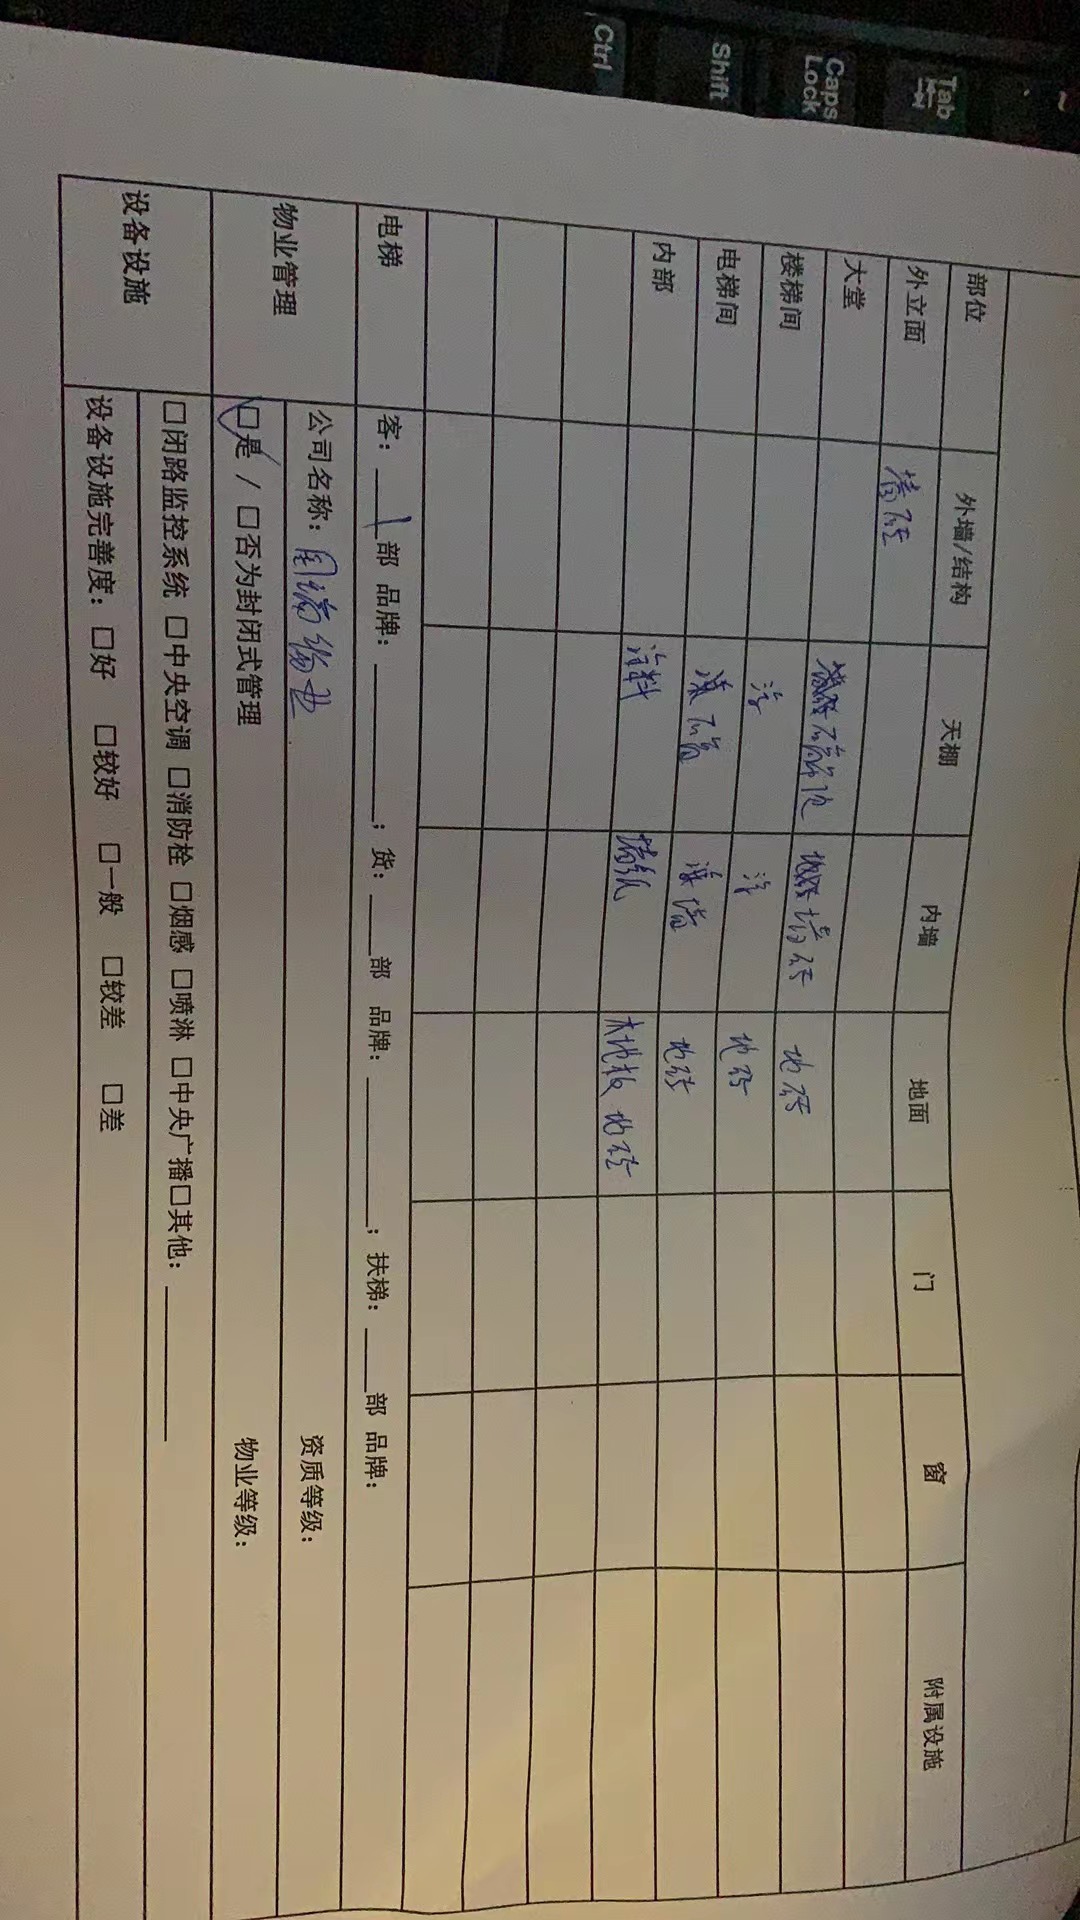 ~
Tab
Caps Lock
Shift
Ctrl
部位 外墙/结构 天棚 内墙 地面 门 窗 附属设施
外立面 墙砖
大堂 墙砖 地砖
楼梯间 地砖
电梯间 地砖
内部 涂料 墙纸 木地板 地砖
电梯 客：1部 品牌：；货：部 品牌：；扶梯：部 品牌：
物业管理 公司名称： 资质等级：
☑是/□否为封闭式管理 物业等级：
设备设施 □闭路监控系统 □中央空调 □消防栓 □烟感 □喷淋 □中央广播□其他：
设备设施完善度：□好 □较好 □一般 □较差 □差